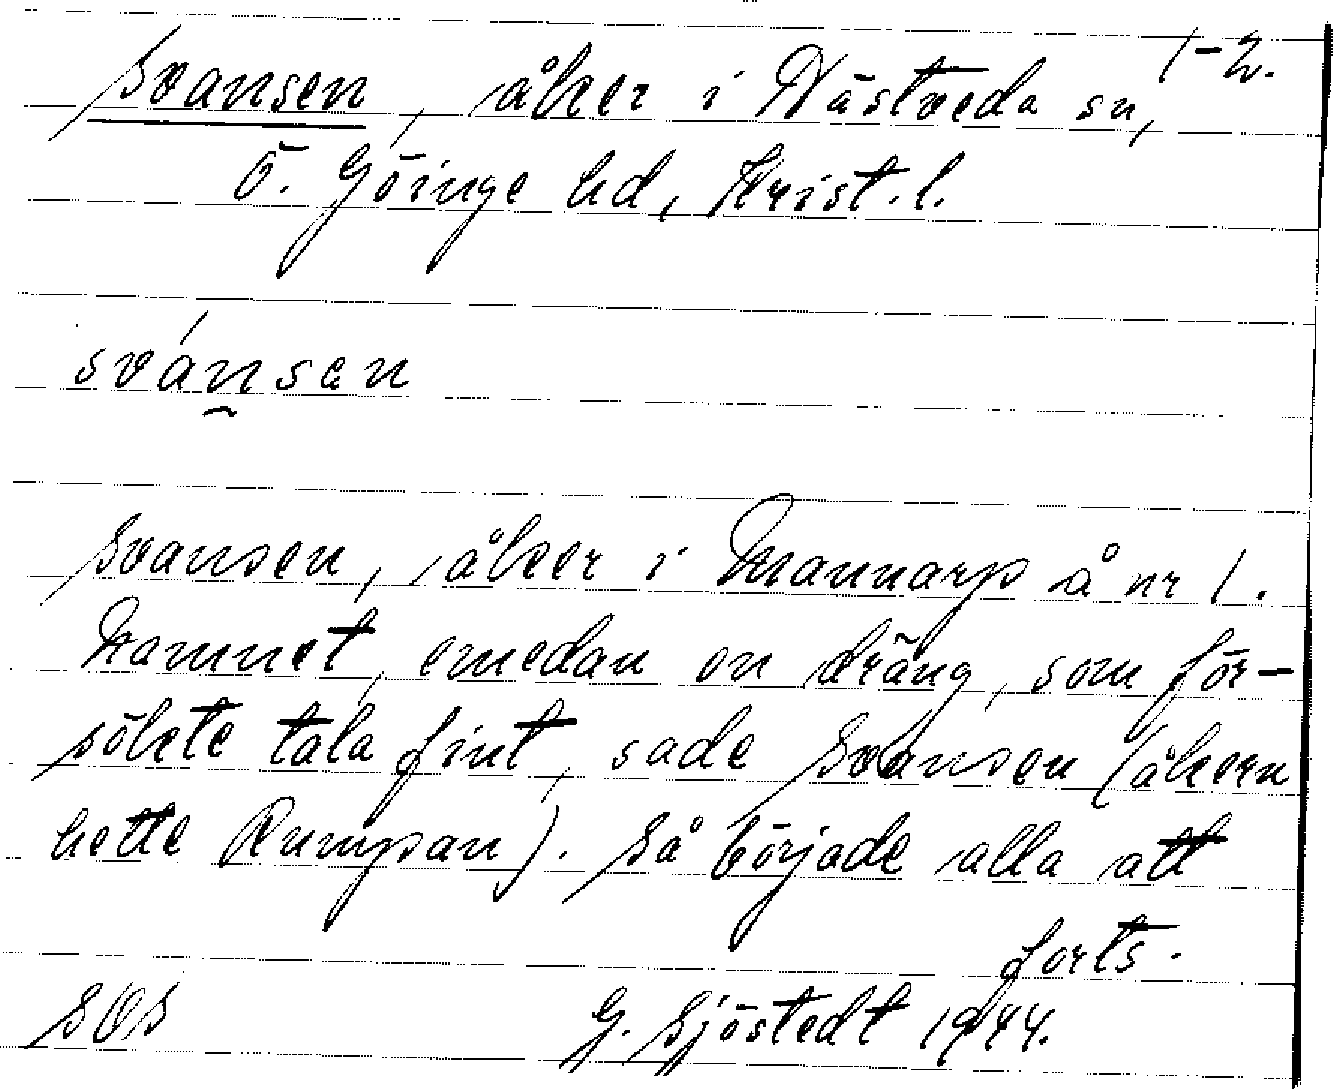 1-2.
Svansen, åker i Nästveda sn,
Ö. Göinge hd, Krist. l.
svánsen
Svansen, åker i Mannarp å nr 1.
Namnet, emedan en dräng, som för-
sökte tala fint, sade Svansen (åkern
hette Rumpan). Så började alla att
forts.
SOS
G. Sjöstedt 1944.